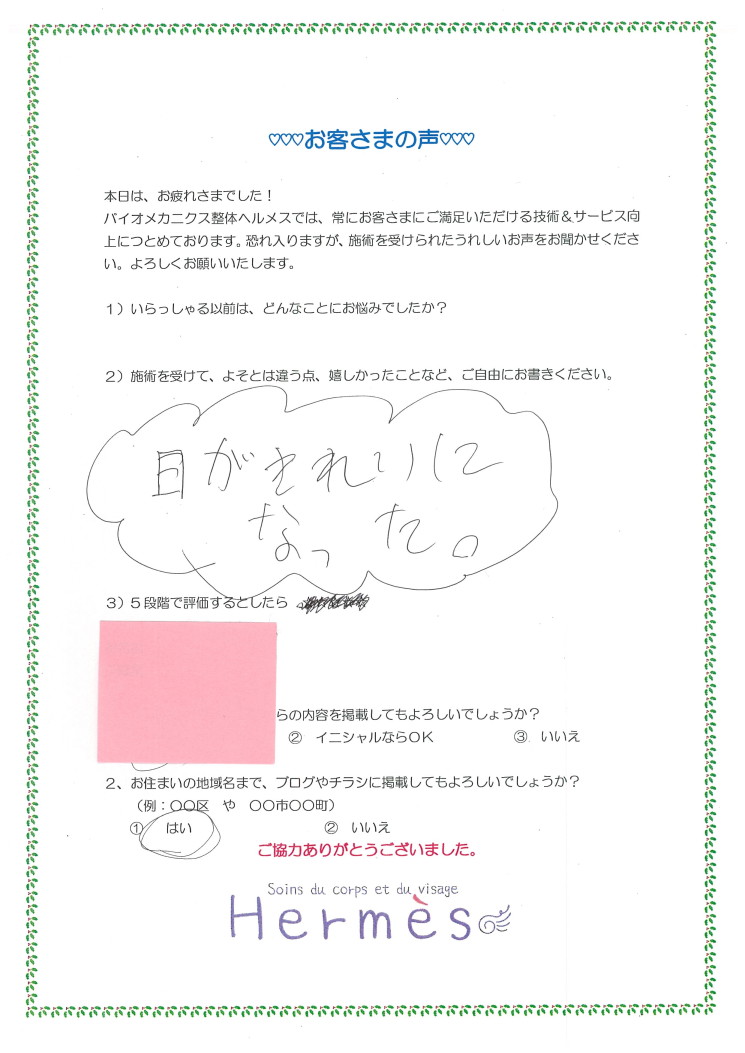 ♡♡♡お客さまの声♡♡♡
本日は、お疲れさまでした！
バイオメカニクス整体ヘルメスでは、常にお客さまにご満足いただける技術＆サービス向
上につとめております。恐れ入りますが、施術を受けられたうれしいお声をお聞かせくださ
い。よろしくお願いいたします。
１）いらっしゃる以前は、どんなことにお悩みでしたか？
２）施術を受けて、よそとは違う点、嬉しかったことなど、ご自由にお書きください。
目がきれいに
なった。
３）５段階で評価するとしたら
らの内容を掲載してもよろしいでしょうか？
② イニシャルならＯＫ ③ いいえ
２、お住まいの地域名まで、ブログやチラシに掲載してもよろしいでしょうか？
（例：〇〇区 や 〇〇市〇〇町）
① はい ② いいえ
ご協力ありがとうございました。
Soins du corps et du visage
Hermès